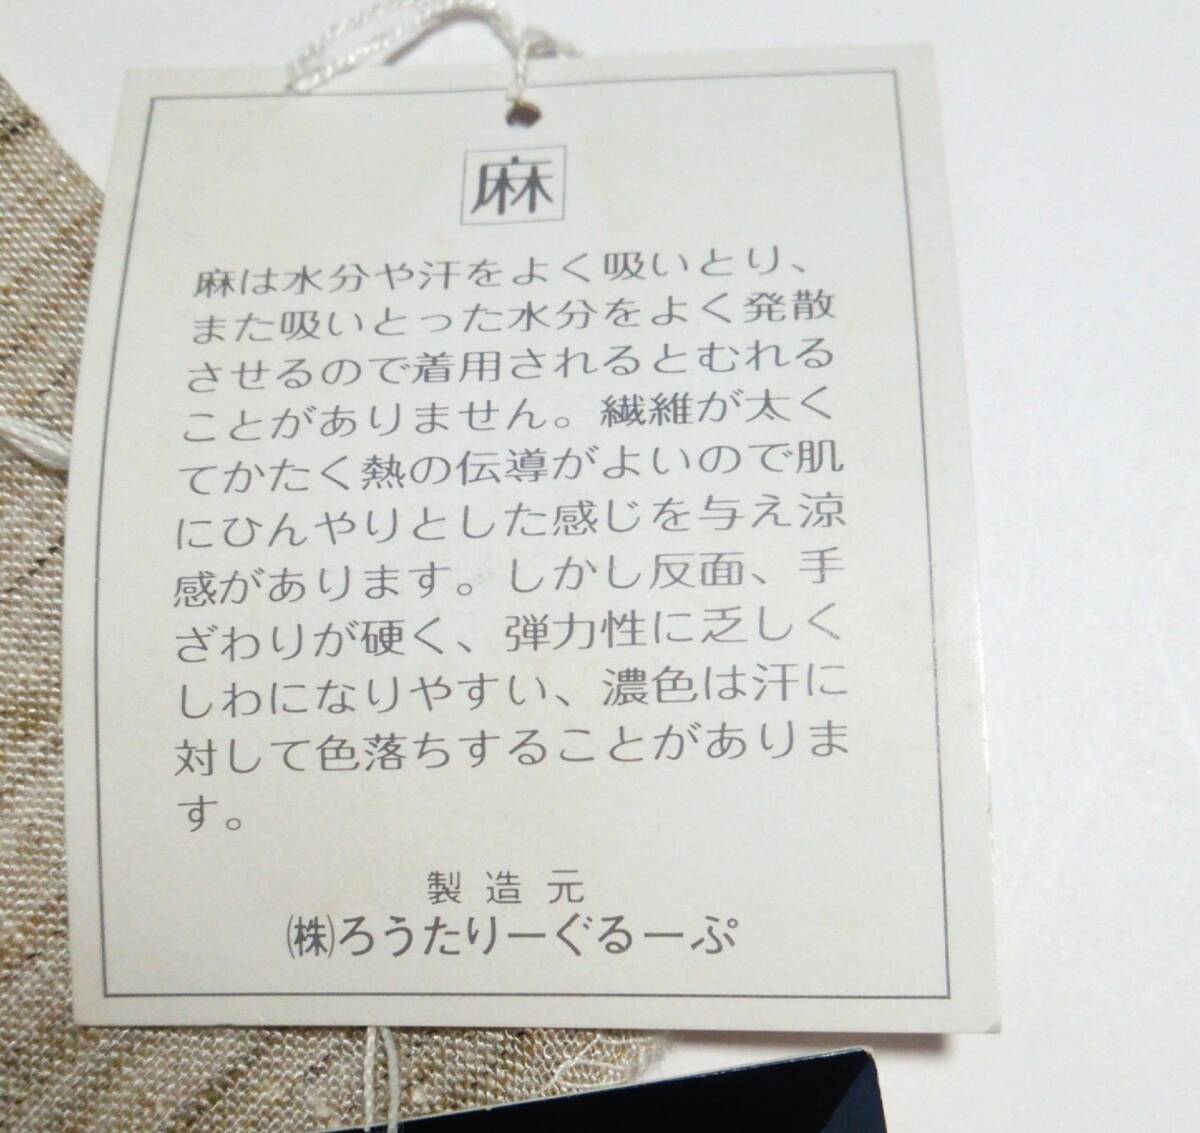 麻
麻は水分や汗をよく吸いとり、
また吸いとった水分をよく発散
させるので着用されるとむれる
ことがありません。繊維が太く
てかたく熱の伝導がよいので肌
にひんやりとした感じを与え涼
感があります。しかし反面、手
ざわりが硬く、弾力性に乏しく
しわになりやすい、濃色は汗に
対して色落ちすることがありま
す。
製造元
㈱ろうたりーぐるーぷ